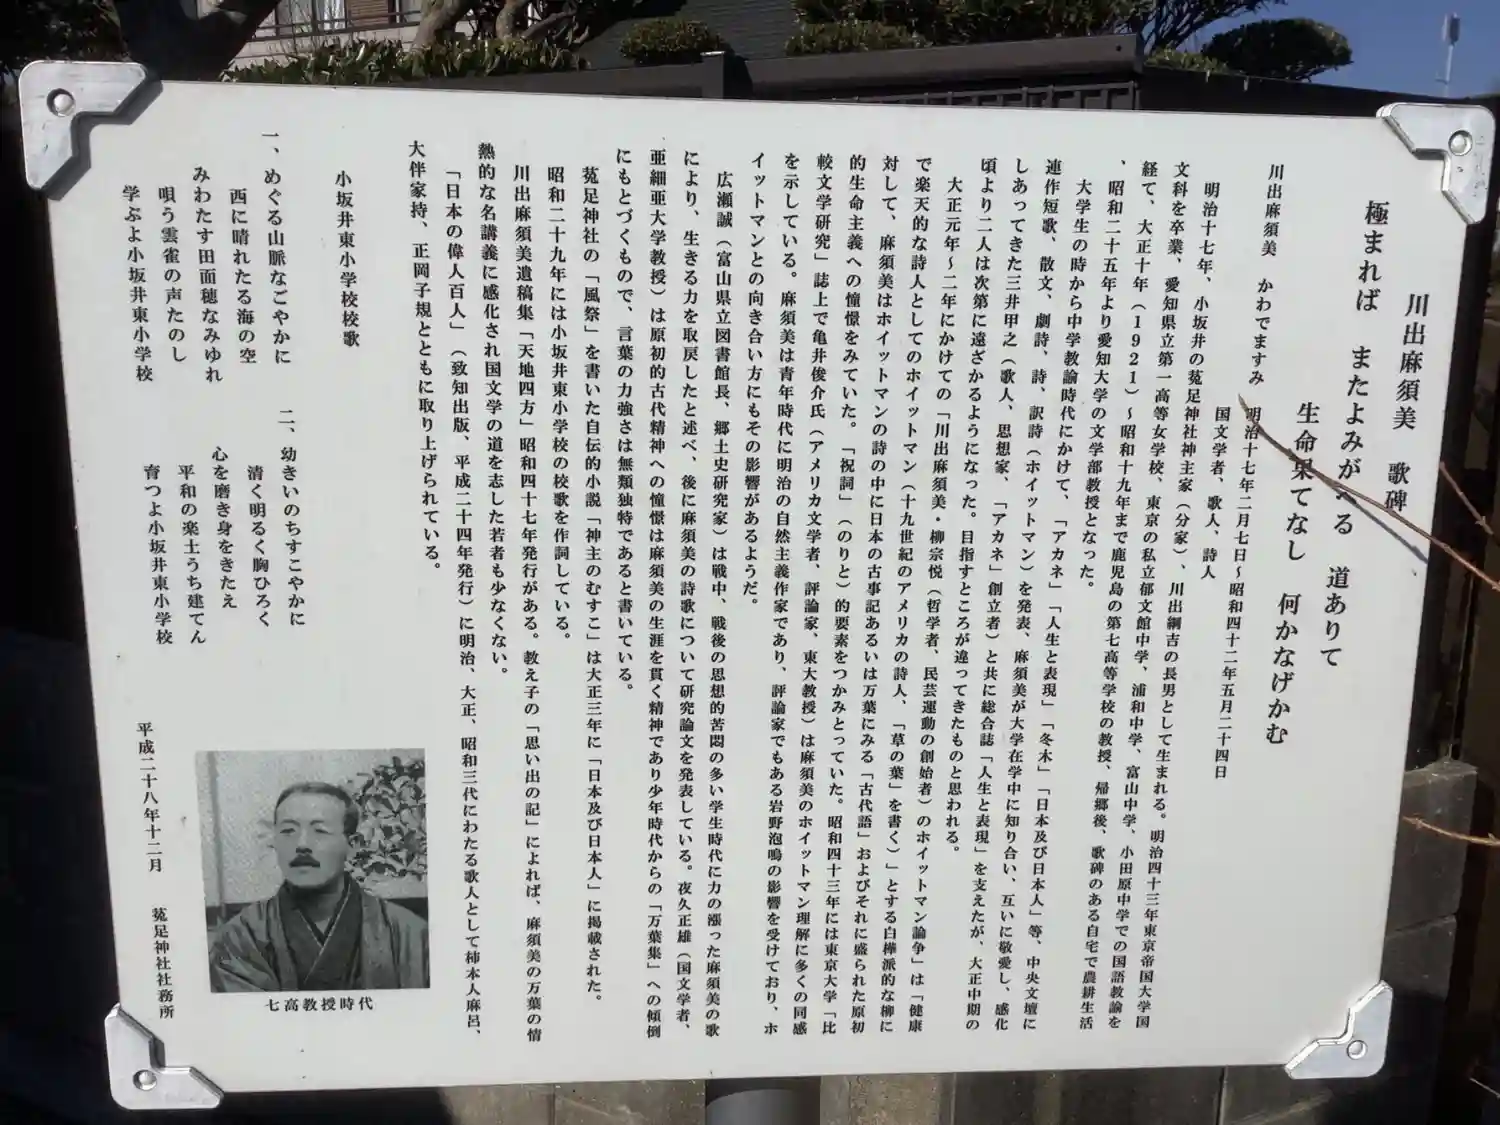 川出麻須美 歌碑
極まれば またよみがへる 道ありて
生命果てなし 何かなげかむ
川出麻須美 かわでますみ 明治十七年二月七日～昭和四十二年五月二十四日
国文学者、歌人、詩人
明治十七年、小坂井の菟足神社神主家（分家）、川出綱吉の長男として生まれる。明治四十三年東京帝国大学国
文科を卒業、愛知県立第一高等女学校、東京の私立郁文館中学、浦和中学、富山中学、小田原中学での国語教諭を
経て、大正十年（1921）～昭和十九年まで鹿児島の第七高等学校の教授、帰郷後、歌碑のある自宅で農耕生活
、昭和二十五年より愛知大学の文学部教授となった。
大学生の時から中学教諭時代にかけて、「アカネ」「人生と表現」「冬木」「日本及び日本人」等、中央文壇に
連作短歌、散文、劇詩、詩、訳詩（ホイットマン）を発表、麻須美が大学在学中に知り合い、互いに敬愛し、感化
しあってきた三井甲之（歌人、思想家、「アカネ」創立者）と共に総合誌「人生と表現」を支えたが、大正中期の
頃より二人は次第に遠ざかるようになった。目指すところが違ってきたものと思われる。
大正元年～二年にかけての「川出麻須美・柳宗悦（哲学者、民芸運動の創始者）のホイットマン論争」は「健康
で楽天的な詩人としてのホイットマン（十九世紀のアメリカの詩人、「草の葉」を書く）」とする白樺派的な柳に
対して、麻須美はホイットマンの詩の中に日本の古事記あるいは万葉にみる「古代語」およびそれに盛られた原初
的生命主義への憧憬をみていた。「祝詞」（のりと）的要素をつかみとっていた。昭和四十三年には東京大学「比
較文学研究」誌上で亀井俊介氏（アメリカ文学者、評論家、東大教授）は麻須美のホイットマン理解に多くの同感
を示している。麻須美は青年時代に明治の自然主義作家であり、評論家でもある岩野泡鳴の影響を受けており、ホ
イットマンとの向き合い方にもその影響があるようだ。
広瀬誠（富山県立図書館長、郷土史研究家）は戦中、戦後の思想的苦悶の多い学生時代に力の漲った麻須美の歌
により、生きる力を取戻したと述べ、後に麻須美の詩歌について研究論文を発表している。夜久正雄（国文学者、
亜細亜大学教授）は原初的古代精神への憧憬は麻須美の生涯を貫く精神であり少年時代からの「万葉集」への傾倒
にもとづくもので、言葉の力強さは無類独特であると書いている。
菟足神社の「風祭」を書いた自伝的小説「神主のむすこ」は大正三年に「日本及び日本人」に掲載された。
昭和二十九年には小坂井東小学校の校歌を作詞している。
川出麻須美遺稿集「天地四方」昭和四十七年発行がある。教え子の「思い出の記」によれば、麻須美の万葉の情
熱的な名講義に感化され国文学の道を志した若者も少なくない。
「日本の偉人百人」（致知出版、平成二十四年発行）に明治、大正、昭和三代にわたる歌人として柿本人麻呂、
大伴家持、正岡子規とともに取り上げられている。
小坂井東小学校校歌
一、めぐる山脈なごやかに
西に晴れたる海の空
みわたす田面穂なみゆれ
唄う雲雀の声たのし
学ぶよ小坂井東小学校
二、幼きいのちすこやかに
清く明るく胸ひろく
心を磨き身をきたえ
平和の楽土うち建てん
育つよ小坂井東小学校
七高教授時代
平成二十八年十二月 菟足神社社務所